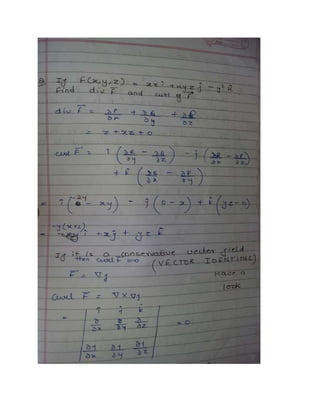 Q If F(x,y,z) = xz i + xyz j - y² k
Find div F and curl of F
div F = ∂P/∂x + ∂Q/∂y + ∂R/∂z
= z + xz + 0
curl F = i (∂R/∂y - ∂Q/∂z) - j (∂R/∂x - ∂P/∂z)
+ k (∂Q/∂x - ∂P/∂y)
= i (-2y - xy) - j (0 - x) + k (yz - 0)
= -y(x+2) i + xj + yz k
If it is a conservative vector field
then curl F = 0 (VECTOR IDENTITIES)
F = ∇f Have a
look
Curl F = ∇ × ∇f
= | i j k |
| ∂/∂x ∂/∂y ∂/∂z | = 0
| ∂f/∂x ∂f/∂y ∂f/∂z |